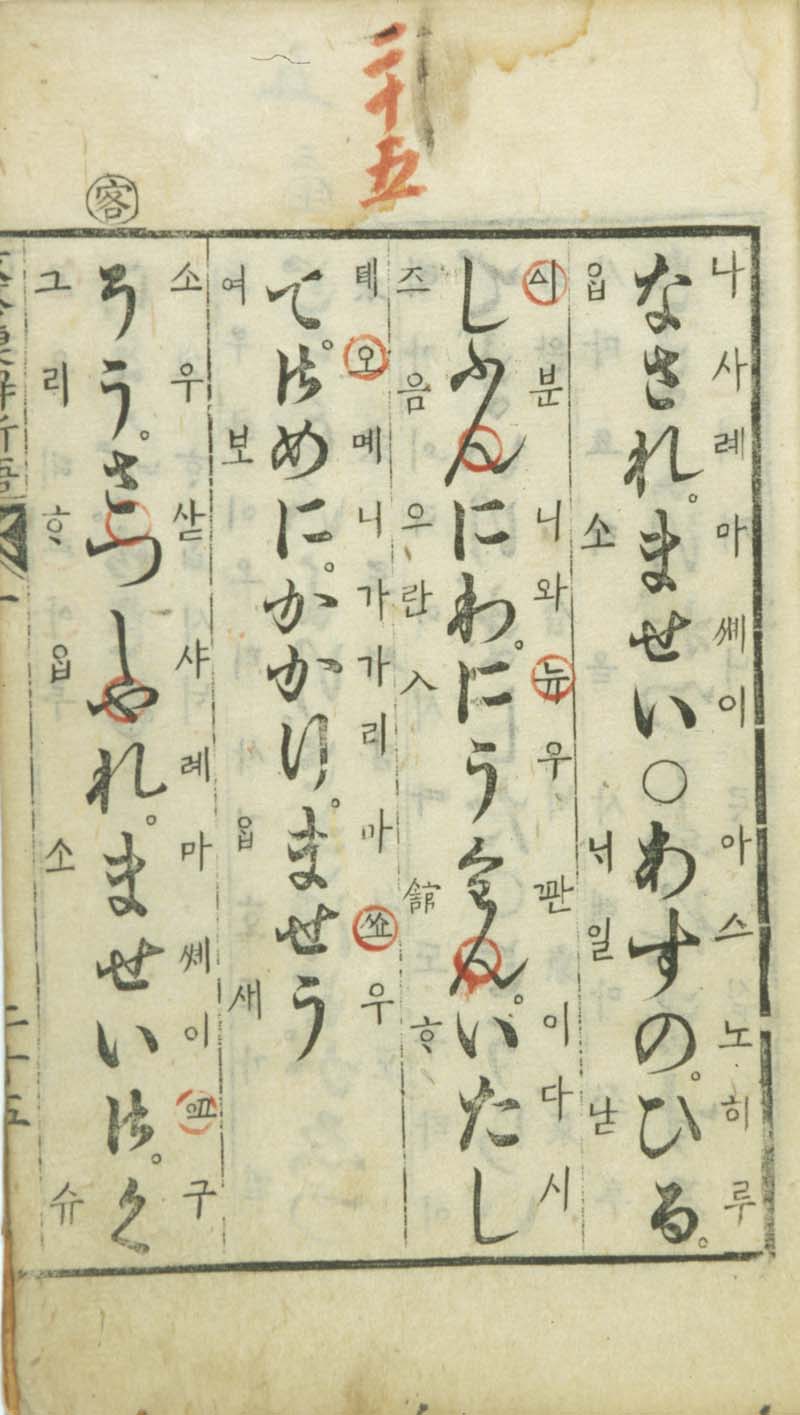 二十五
客
나사례마쎼이 아스노히루
なされ。ませい○あすの。ひる。
읍소 닉일 낟
시분니와 뉴우꽌이다시
しふんにわ。にうくわん。いたし
즈음으란 入館ᄒᆞ
톄오메니가가리마쑈우
て。御めに。かかり。ませう
여 보읍새
소우삳샤례마쎼이 구
そう。さつしやれ。ませい御。く
그리ᄒᆞ읍소 슈
捷解新語
一
二十五